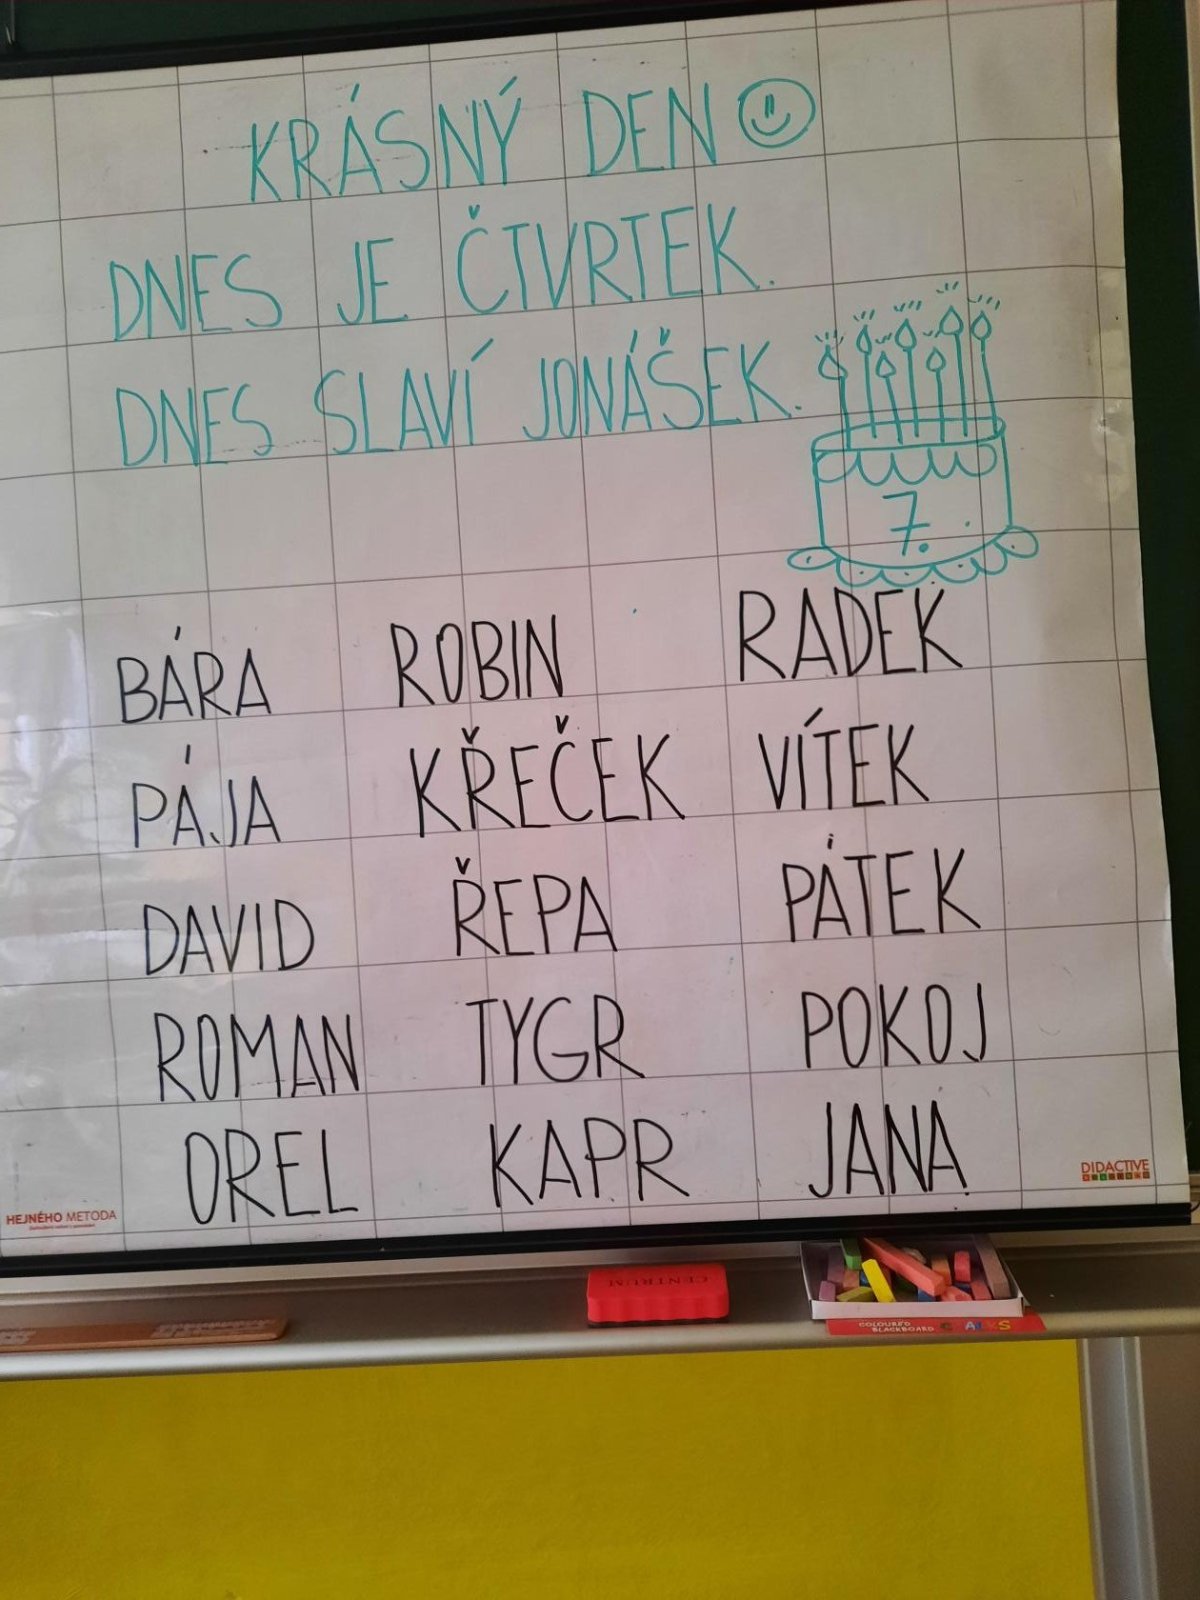 KRÁSNÝ DEN
DNES JE ČTVRTEK.
DNES SLAVÍ JONÁŠEK.
7.
BÁRA ROBIN RADEK
PÁJA KŘEČEK VÍTEK
DAVID ŘEPA PÁTEK
ROMAN TYGR POKOJ
OREL KAPR JANA
HEJNÉHO METODA
DIDACTIVE
CENTRUM
COLOURED
BLACKBOARD CHALKS